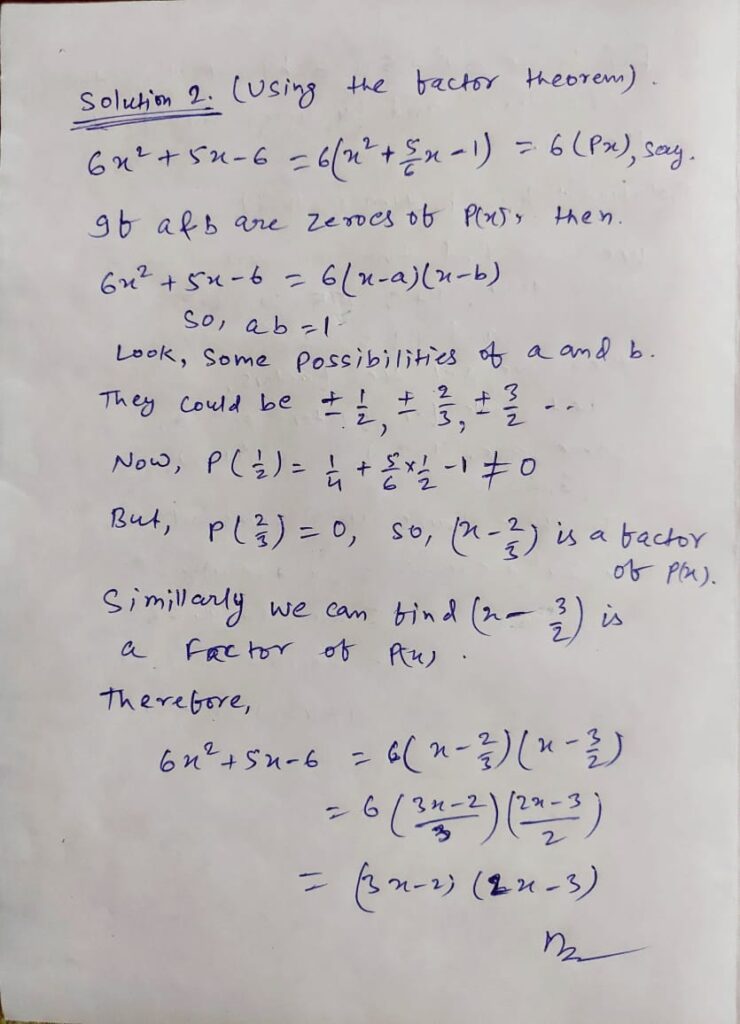 Solution 2. (Using the factor theorem).
6x² + 5x - 6 = 6(x² + 5/6 x - 1) = 6(Px), say.
If a & b are zeroes of P(x), then.
6x² + 5x - 6 = 6(x-a)(x-b)
So, ab = 1
Look, Some Possibilities of a and b.
They could be ± 1/2, ± 2/3, ± 3/2 ..
Now, P(1/2) = 1/4 + 5/6 × 1/2 - 1 ≠ 0
But, P(2/3) = 0, so, (x - 2/3) is a factor
of P(x).
Simillarly we can find (x - 3/2) is
a Factor of P(x).
Therefore,
6x² + 5x - 6 = 6(x - 2/3)(x - 3/2)
= 6 (3x-2/3) (2x-3/2)
= (3x-2) (2x-3)